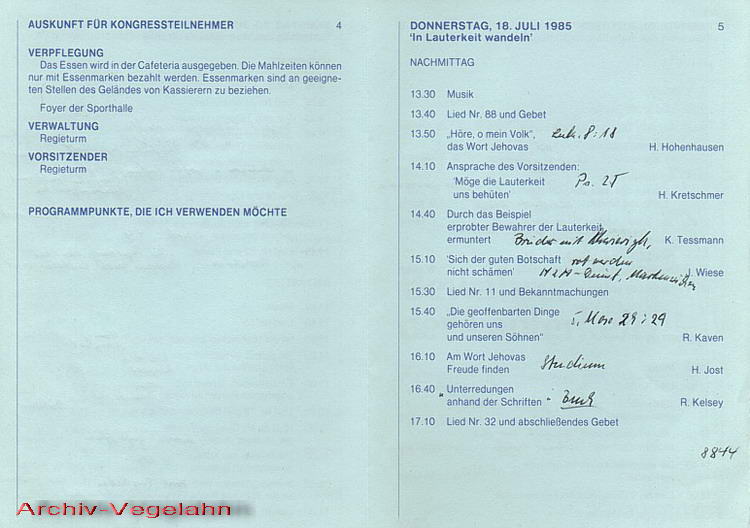 AUSKUNFT FÜR KONGRESSTEILNEHMER 4
VERPFLEGUNG
Das Essen wird in der Cafeteria ausgegeben. Die Mahlzeiten können
nur mit Essenmarken bezahlt werden. Essenmarken sind an geeigne-
ten Stellen des Geländes von Kassierern zu beziehen.
Foyer der Sporthalle
VERWALTUNG
Regieturm
VORSITZENDER
Regieturm
PROGRAMMPUNKTE, DIE ICH VERWENDEN MÖCHTE
DONNERSTAG, 18. JULI 1985 5
'In Lauterkeit wandeln'
NACHMITTAG
13.30 Musik
13.40 Lied Nr. 88 und Gebet
13.50 „Höre, o mein Volk“, Luk. 8:18
das Wort Jehovas H. Hohenhausen
14.10 Ansprache des Vorsitzenden:
'Möge die Lauterkeit Ps. 25
uns behüten' H. Kretschmer
14.40 Durch das Beispiel
erprobter Bewahrer der Lauterkeit
ermuntert Brüder mit K. Tessmann
15.10 'Sich der guten Botschaft rot werden
nicht schämen' J. Wiese
15.30 Lied Nr. 11 und Bekanntmachungen
15.40 „Die geoffenbarten Dinge
gehören uns 5. Mose 29:29
und unseren Söhnen“ R. Kaven
16.10 Am Wort Jehovas
Freude finden Studium H. Jost
16.40 „Unterredungen
anhand der Schriften“ Buch R. Kelsey
17.10 Lied Nr. 32 und abschließendes Gebet
8844
Archiv-Vegelahn